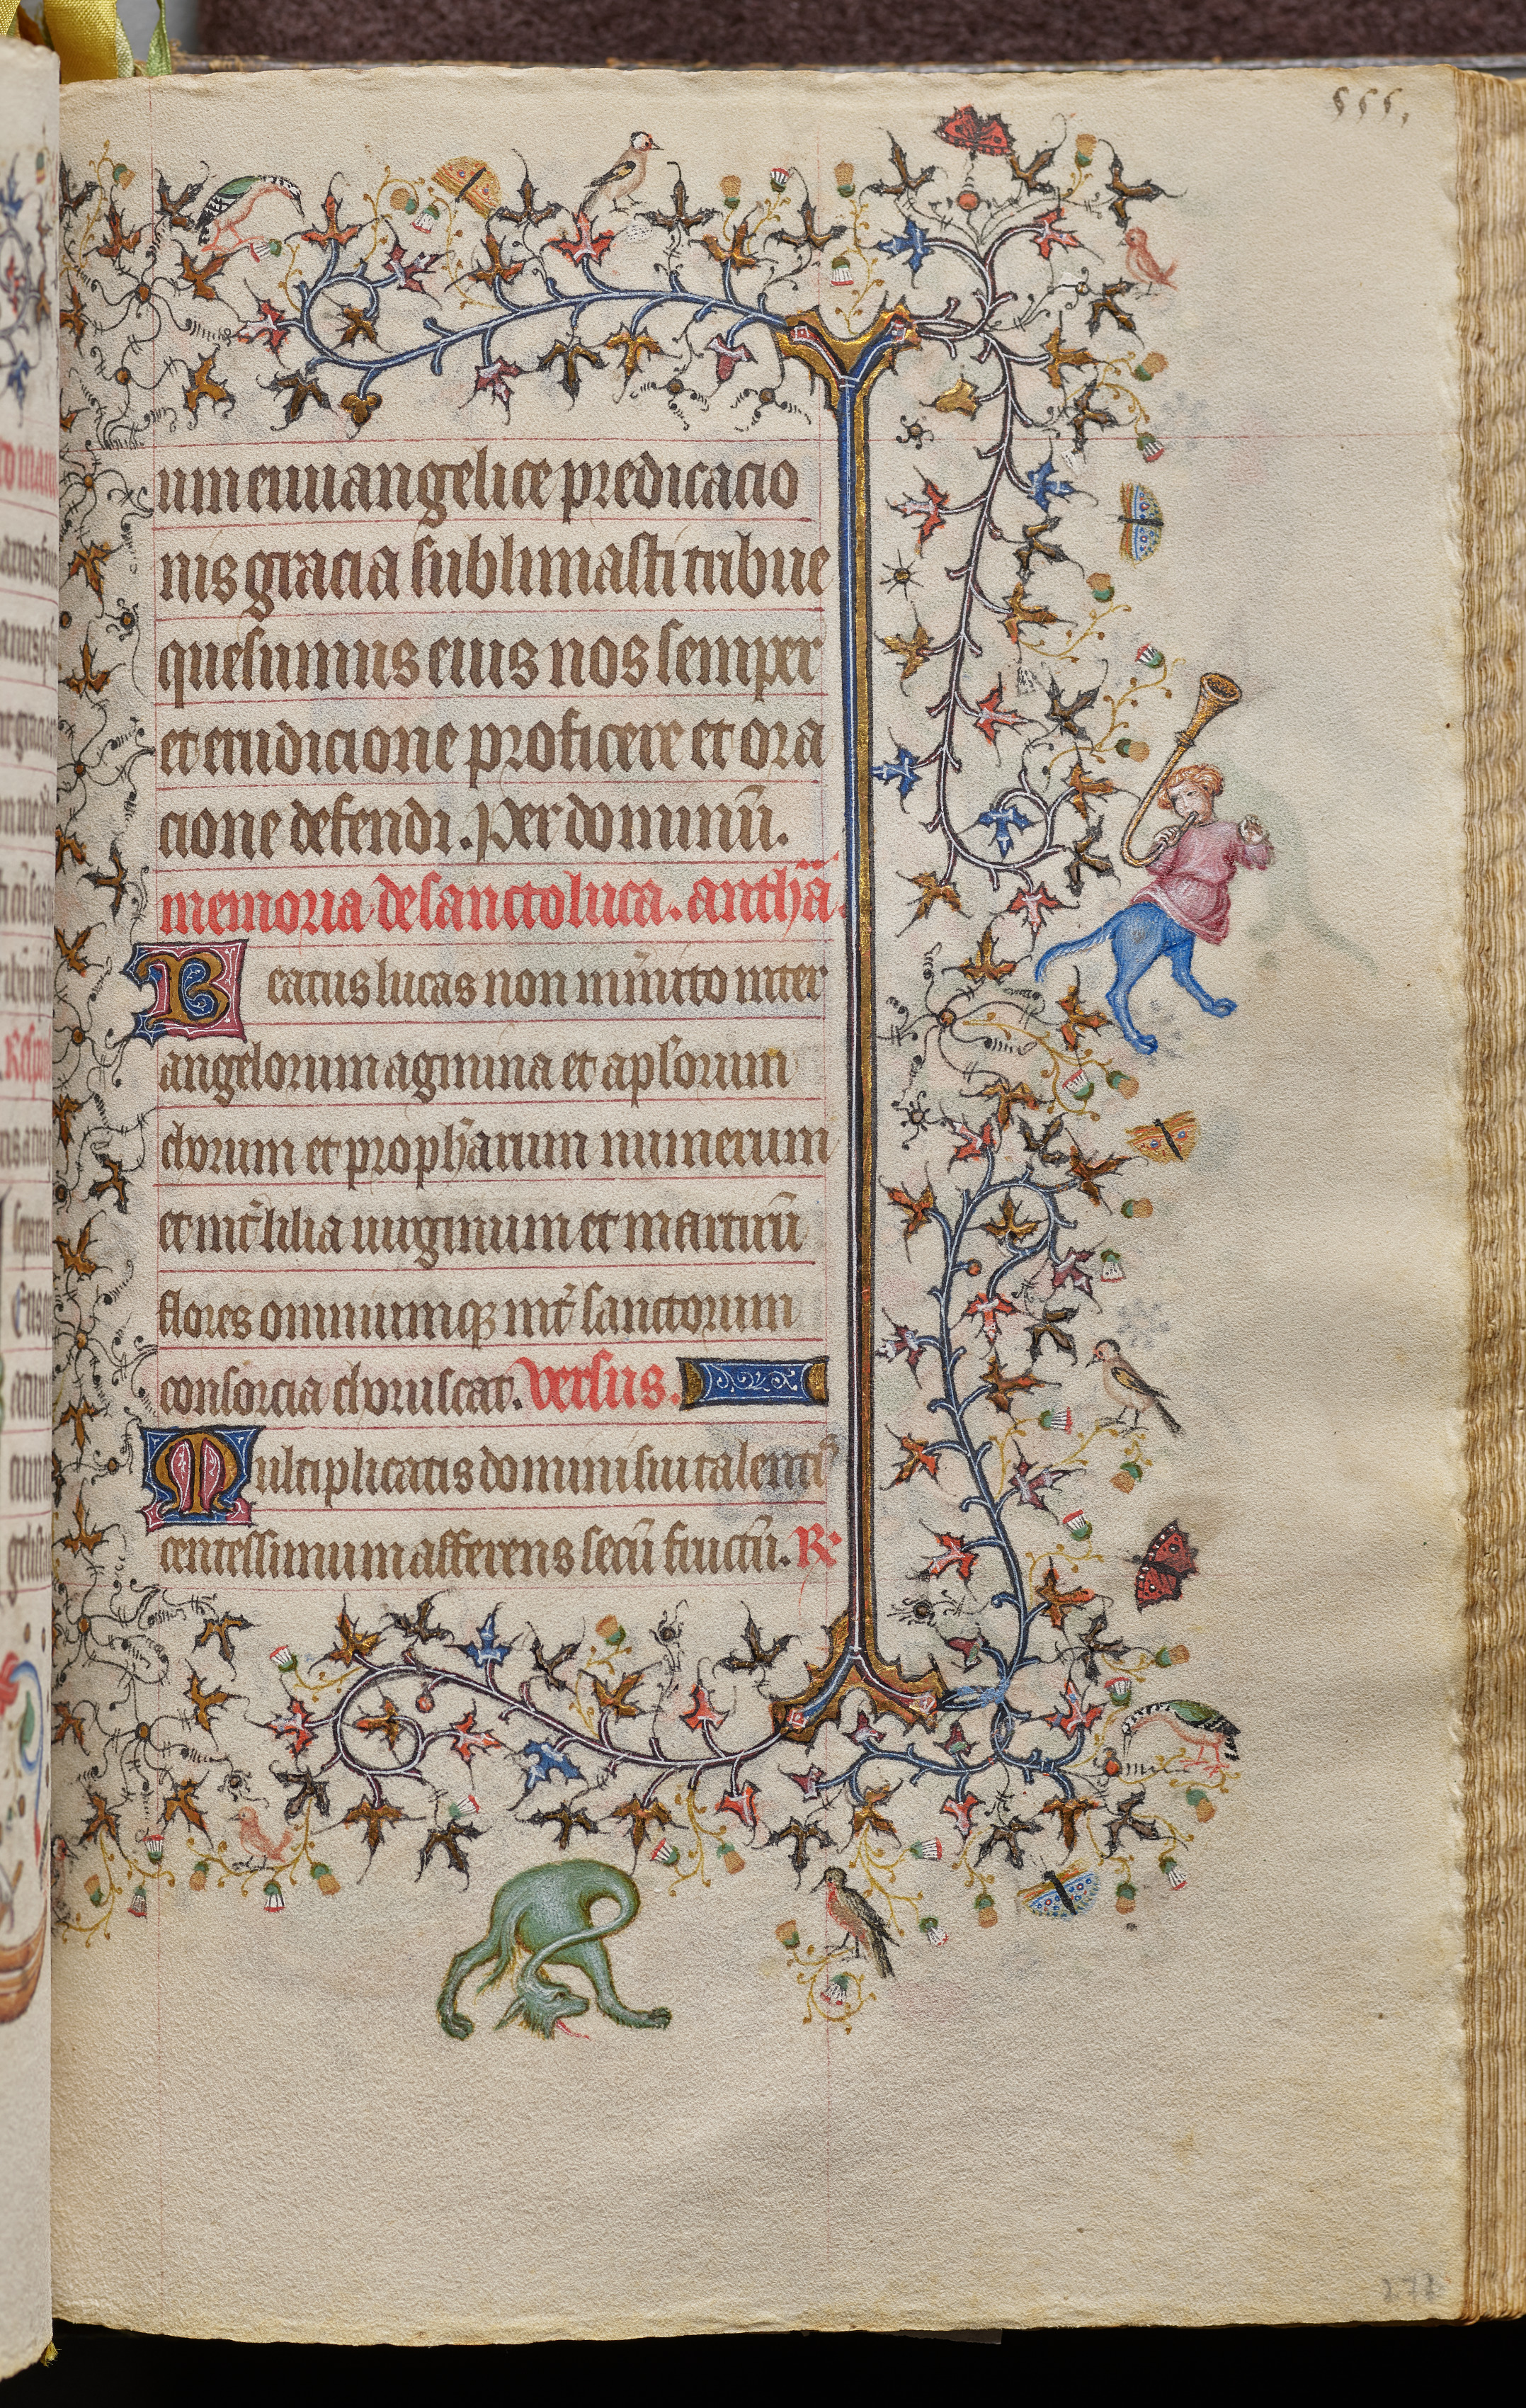 555.
um euuangelice predicacio
nis gracia sublimasti tribue
quesumus eius nos semper
et erudicione proficere et ora
cione defendi. Per dominū.
memoria de sancto luca. anthā.
Beatus lucas non īmerito inter
angelorum agmina et aplorum
chorum et prophãrum numerum
et int̃ lilia uirginum et martirū
flores omniumqꝫ int̃ sanctorum
consorcia choruscat. versus.
Multiplicatis domini sui talentis
centessimum afferens secū fructū. Re
271